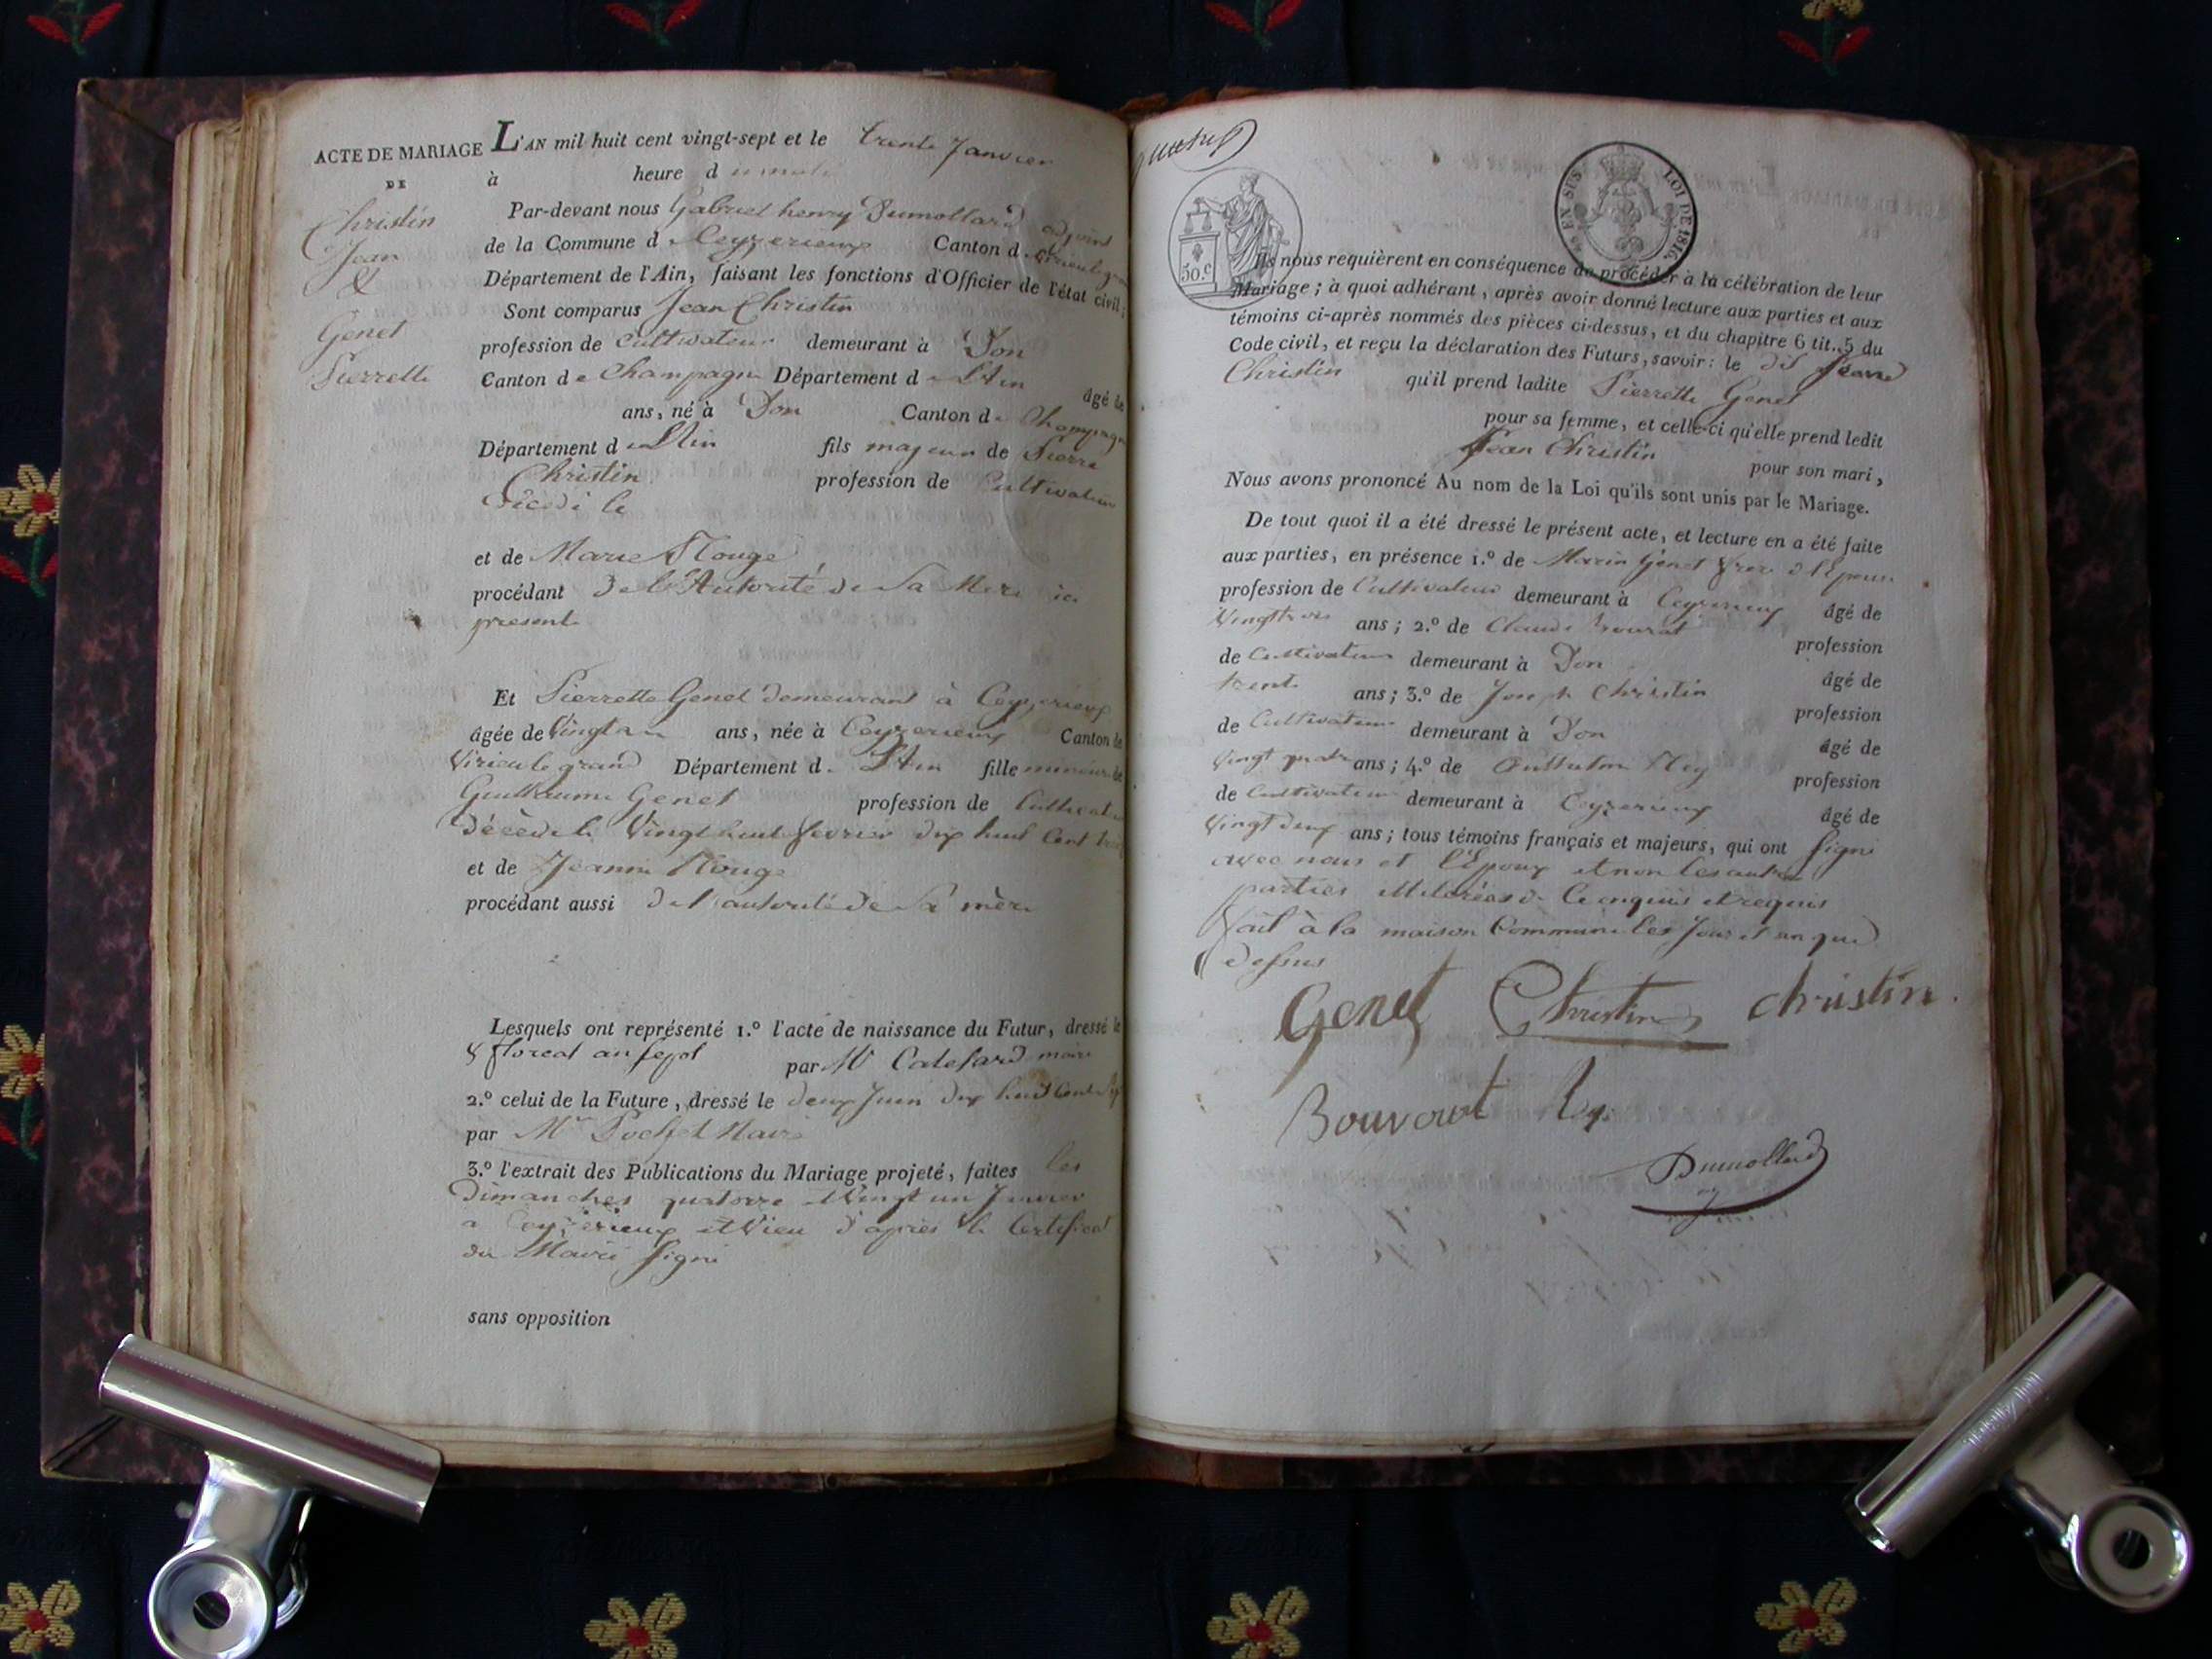 ACTE DE MARIAGE
DE
Christin
Jean
&
Genet
Pierrette
L'AN mil huit cent vingt-sept et le trente Janvier
à heure d
Par-devant nous Gabriel henry Dumollard adjoint
de la Commune de Ceyzerieux Canton de Virieu le grand
Département de l'Ain, faisant les fonctions d'Officier de l'état civil;
Sont comparus Jean Christin
profession de Cultivateur demeurant à Don
Canton de Champagne Département de L'Ain âgé de
ans, né à Don Canton de Champagne
Département de L'Ain fils majeur de Pierre
Christin profession de Cultivateur
décédé le
et de Marie
procédant de l'Autorité de Sa Mere ici
presente
Et Pierrette Genet demeurant à Ceyzerieux
âgée de Vingt ans, née à Ceyzerieux Canton de
Virieu le grand Département de L'Ain fille mineure de
Guillaume Genet profession de Cultivateur
décédé le Vingt huit fevrier dix huit Cent
et de Jeanne
procédant aussi de l'autorité de Sa mère
Lesquels ont représenté 1.º l'acte de naissance du Futur, dressé le
8 floreal an sept par Mr maire
2.º celui de la Future, dressé le deux Juin dix huit Cent
par Mr Maire
3.º l'extrait des Publications du Mariage projeté, faites les
Dimanches quatorze et Vingt un Janvier
a Ceyzerieux et Vieu d'après le Certificat
du Maire signé
sans opposition
50.c
EN SUS LOI DE 1816
Ils nous requièrent en conséquence de procéder à la célébration de leur
Mariage; à quoi adhérant, après avoir donné lecture aux parties et aux
témoins ci-après nommés des pièces ci-dessus, et du chapitre 6 tit. 5 du
Code civil, et reçu la déclaration des Futurs, savoir: le dit Jean
Christin qu'il prend ladite Pierrette Genet
pour sa femme, et celle-ci qu'elle prend ledit
Jean Christin pour son mari,
Nous avons prononcé Au nom de la Loi qu'ils sont unis par le Mariage.
De tout quoi il a été dressé le présent acte, et lecture en a été faite
aux parties, en présence 1.º de Marin Genet frere
profession de Cultivateur demeurant à Ceyzerieux âgé de
Vingt trois ans; 2.º de Claude profession
de Cultivateur demeurant à Don âgé de
trente ans; 3.º de Joseph Christin profession
de Cultivateur demeurant à Don âgé de
Vingt quatre ans; 4.º de Anthelme Rey profession
de Cultivateur demeurant à Ceyzerieux âgé de
Vingt deux ans; tous témoins français et majeurs, qui ont signé
avec nous et l'Epoux et non les autres
parties illiterées de ce enquis et requis
fait à la maison Commune les Jour et an que
dessus
Genet Christin christin.
Bouvarot Rey
Dumollard